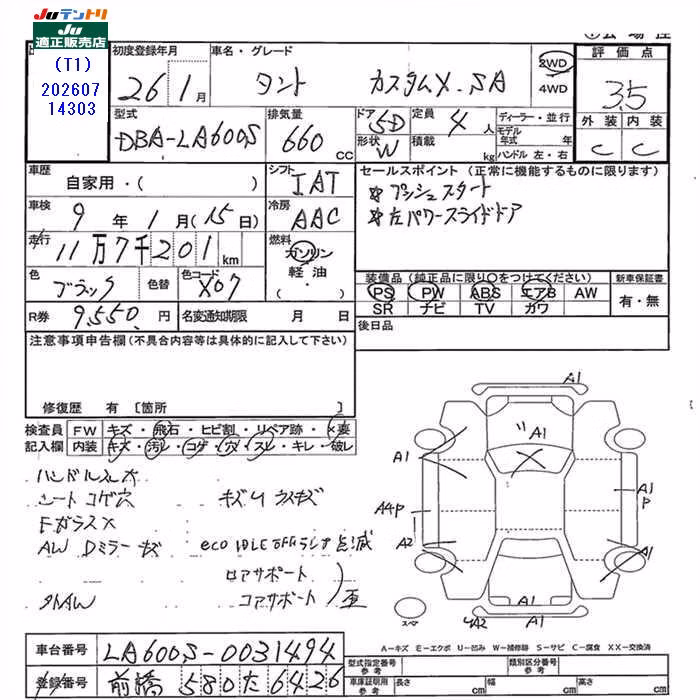 JUテントリ
JU
適正販売店
(T1)
202607
14303
初度登録年月
26 1月
車名・グレード
タント カスタムX.SA
2WD
4WD
評価点
3.5
外装 内装
C C
型式
DBA-LA600S
排気量
660 CC
ドア 5D
形状 W
定員 4 人
積載 kg
ディーラー・並行
モデル年式 年
ハンドル 左・右
車歴
自家用・( )
シフト
IAT
車検
9年1月(15日)
冷房
AAC
走行
11万7千201km
燃料
ガソリン
軽油・
( )
色
ブラック
色替
色コード
X07
R券
9,550. 円
名変通知期限 月 日
セールスポイント (正常に機能するものに限ります)
☆プッシュスタート
☆左パワースライドドア
装備品 (純正品に限り○をつけてください)
PS PW ABS エアB AW
SR ナビ TV カワ
新車保証書
有・無
後日品
注意事項申告欄(不具合内容等は具体的に記入して下さい)
修復歴 有 [箇所 ]
検査員 FW キズ・飛石・ヒビ割・リペア跡・×要
記入欄 内装 キズ・汚レ・コゲ・穴・スレ・キレ・破レ
ハンドルスレ大
シートコゲ穴 キズU
Fガラス X
AW Dミラーキズ eco IDLE OFFランプ点滅
ロアサポート
コアサポート
A1
A1
A1
A4P
A1
P
A2
A1
スペア
A2
A1
A-キズ E-エクボ U-凹み W-補修跡 S-サビ C-腐食 XX-交換済
車台番号 LA600S-0031494
登録番号 前橋 580 た 6426
型式指定番号 参考
類別区分番号 参考
車庫証明用 参考 長さ cm 幅 cm 高さ cm